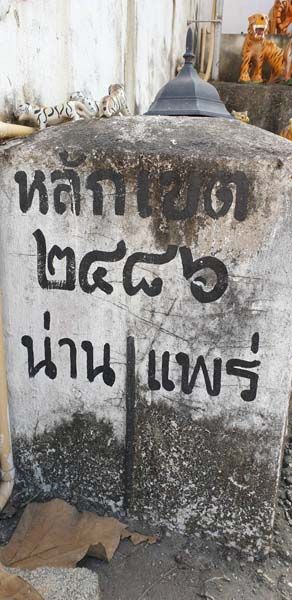 หลักเขต
๒๔๘๖
น่าน แพร่